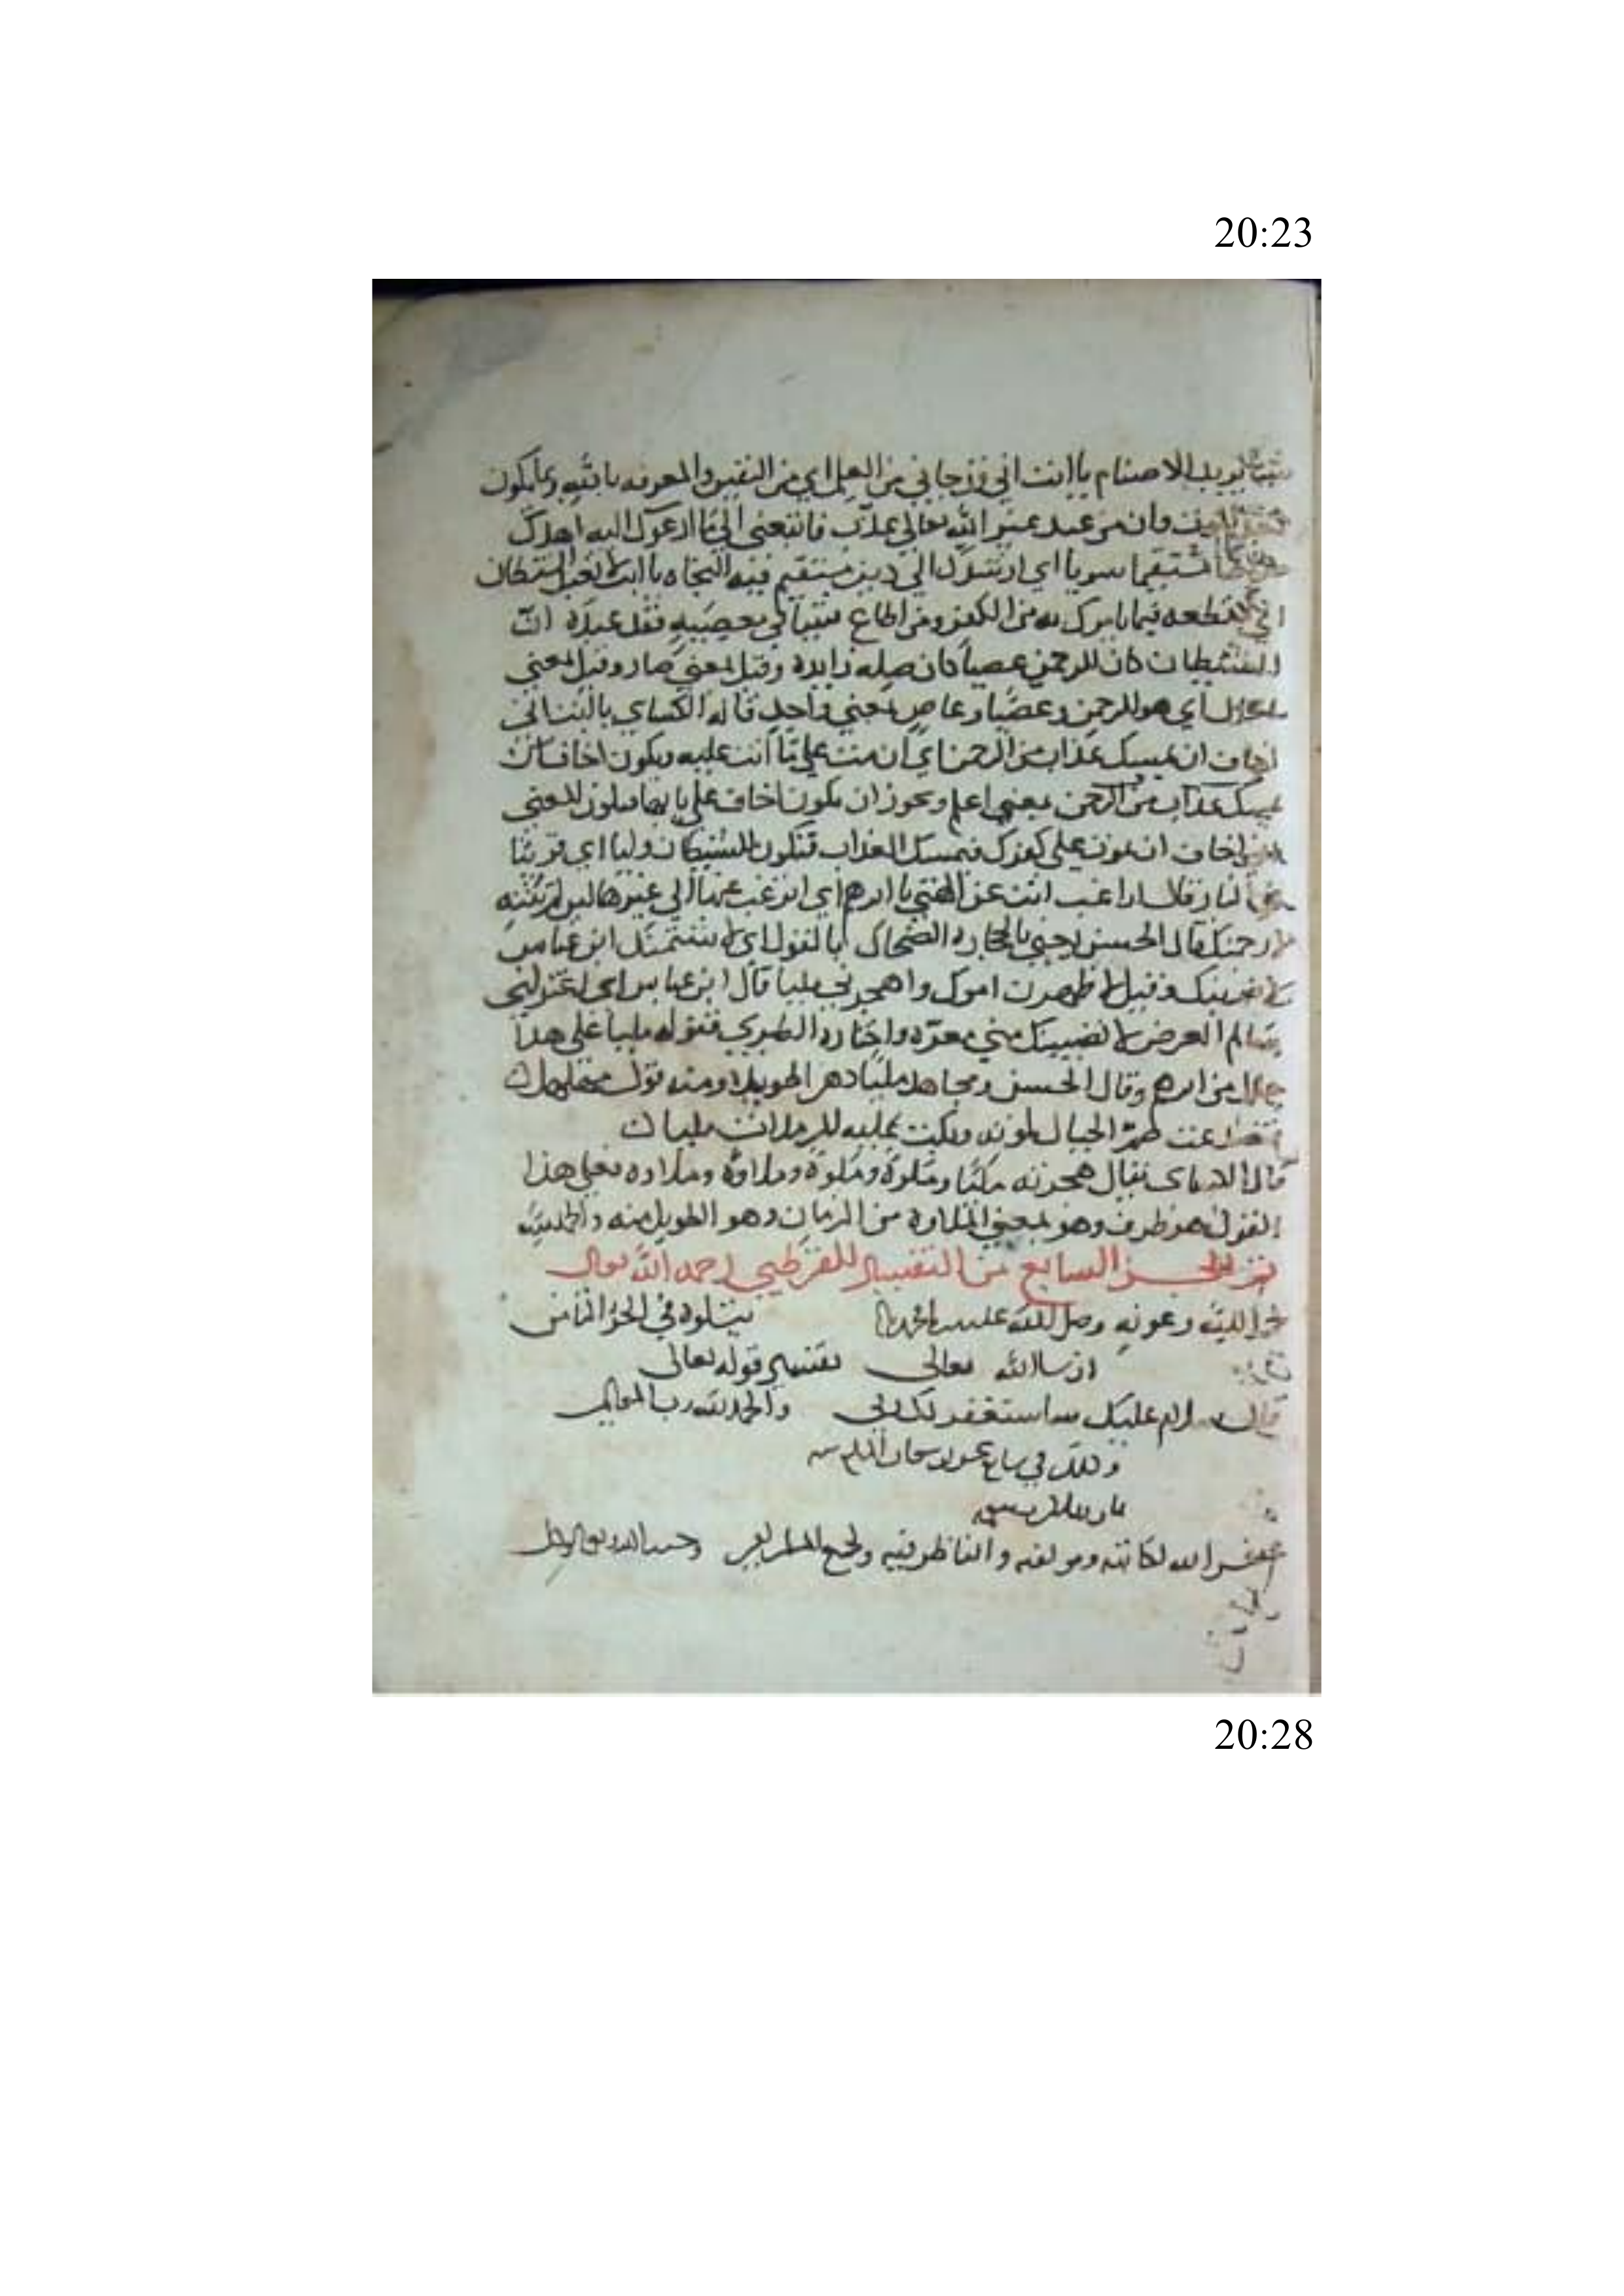 20:23
شيئا يريد الاصنام يا ابت اني قد جاني من العلم اي من اليقين والمعرفه بالله وما يكون
الموت وان من عبد غير الله تعالى عذب فاتبعني الى ما ادعوك اليه اهدك
مستقيما سويا اي ارشدك الى دين مستقيم فيه النجاه يا ابت لا تعبد الشيطان
اي لا تطعه فيما يامرك به من الكفر ومن اطاع شيئا في معصيه فقد عبده ان
الشيطان كان للرحمن عصيا كان صله زايده وقيل بمعنى صار وقيل بمعنى
الحال اي هو للرحمن وعصيا وعاص بمعنى واحد قاله الكساي يا ابت اني
اخاف ان يمسك عذاب من الرحمن اي ان مت على ما انت عليه ويكون اخاف ان
يمسك عذاب من الرحمن بمعنى اعلم ويجوز ان يكون اخاف على بابها فيكون المعنى
اني اخاف ان تموت على كفرك فيمسك العذاب فتكون للشيطان وليا اي قرينا
في النار قال اراغب انت عن الهتي يا ابرهم اي اترغب عنها الى غيرها لين لم تنته
لارجمنك قال الحسن يعني بالحجاره الضحاك بالقول اي لاشتمنك ابن عباس
لاضربنك وقيل لاظهرن امرك واهجرني مليا قال ابن عباس اي اعتزلني
سالم العرض لا يصيبك مني معره واختاره الطبري فقوله مليا على هذا
حال من ابرهم وقال الحسن ومجاهد مليا دهرا طويلا ومنه قول مهلهل
فتصدعت صم الجبال لموته وبكت عليه المرملات مليا
قال الكساي يقال هجرته مليا وملوة وملوة وملاوة وملاوه فعلى هذا
القول هو ظرف وهو بمعنى الملاوة من الزمان وهو الطويل منه والحمد لله
تم الجزء السابع من التفسير للقرطبي رحمه الله تعالى
بحمد الله وعونه وصلى الله على يتلوه في الجزء الثامن
ان شا الله تعالى تفسير قوله تعالى
قال سلام عليك ساستغفر لك ربي والحمد لله رب العالمين
وذلك في
غفر الله لكاتبه ومولفه والناظر فيه ولجميع المسلمين
20:28